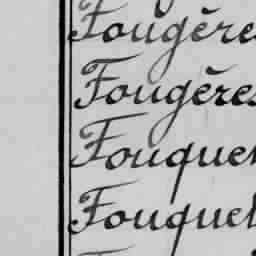 Fougères
Fougères
Fouquet
Fouquet